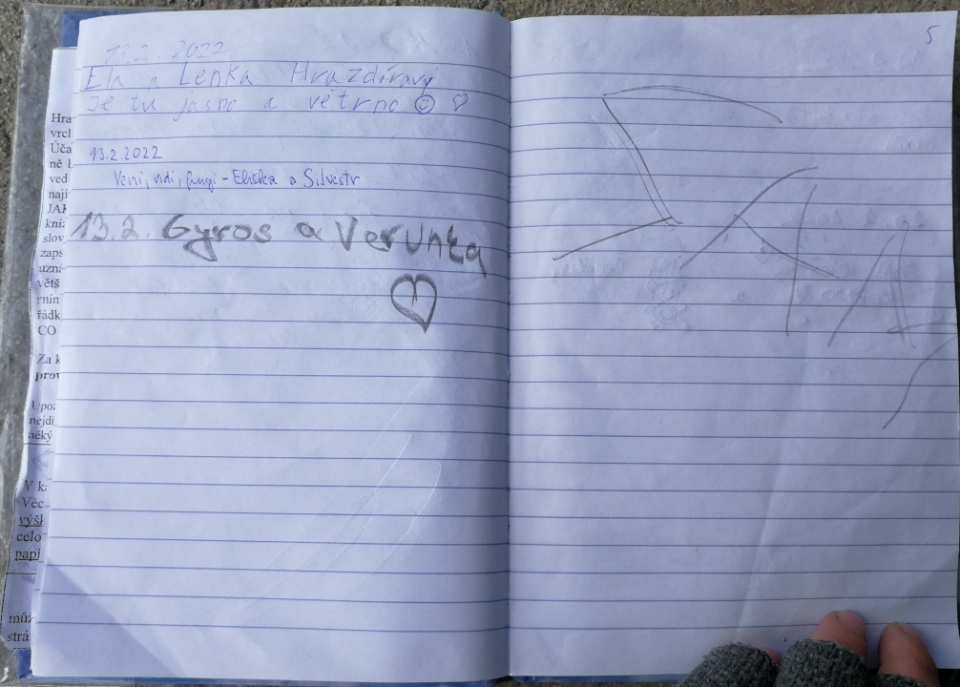 13.2.2022
Ela a Lenka Hrazdírovy
Je tu jasno a větrno
13.2.2022
Veni, vidi, fungi - Eliška a Silvestr
13.2. Gyros a Verunka
5
Hra
vrcl
Úča
ně
ved
nají
JAK
kniz
slov
zaps
uzna
větš
řádk
CO
Za k
prov
Upoz
nejdi
něký
V ka
Věc
výšk
celo
papí
můž
strá